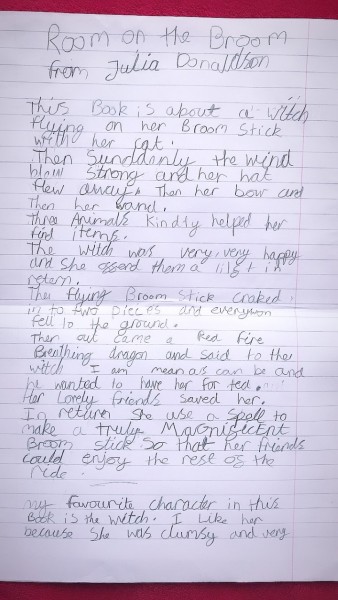 Room on the Broom
from Julia Donaldson
This Book is about a witch
flying on her Broom stick
with her cat.
Then Sunddenly the wind
blow strong and her hat
flew away. Then her bow and
Then her wand.
Three Animals kindly helped her
find items.
The witch was very, very happy
and she offend them a lift in
retern.
The flying Broom stick craked
in to two pieces and everyon
fell to the ground.
Then out came a Red fire
Breathing dragon and said to the
witch I am mean as can be and
he wanted to have her for ted.
Her lovely friends saved her.
In return she use a spell to
make a truly Magnificent
Broom stick so that her friends
could enjoy the rest of the
ride.
my favourite character in this
Book is the witch. I Like her
because she was clumsy and very